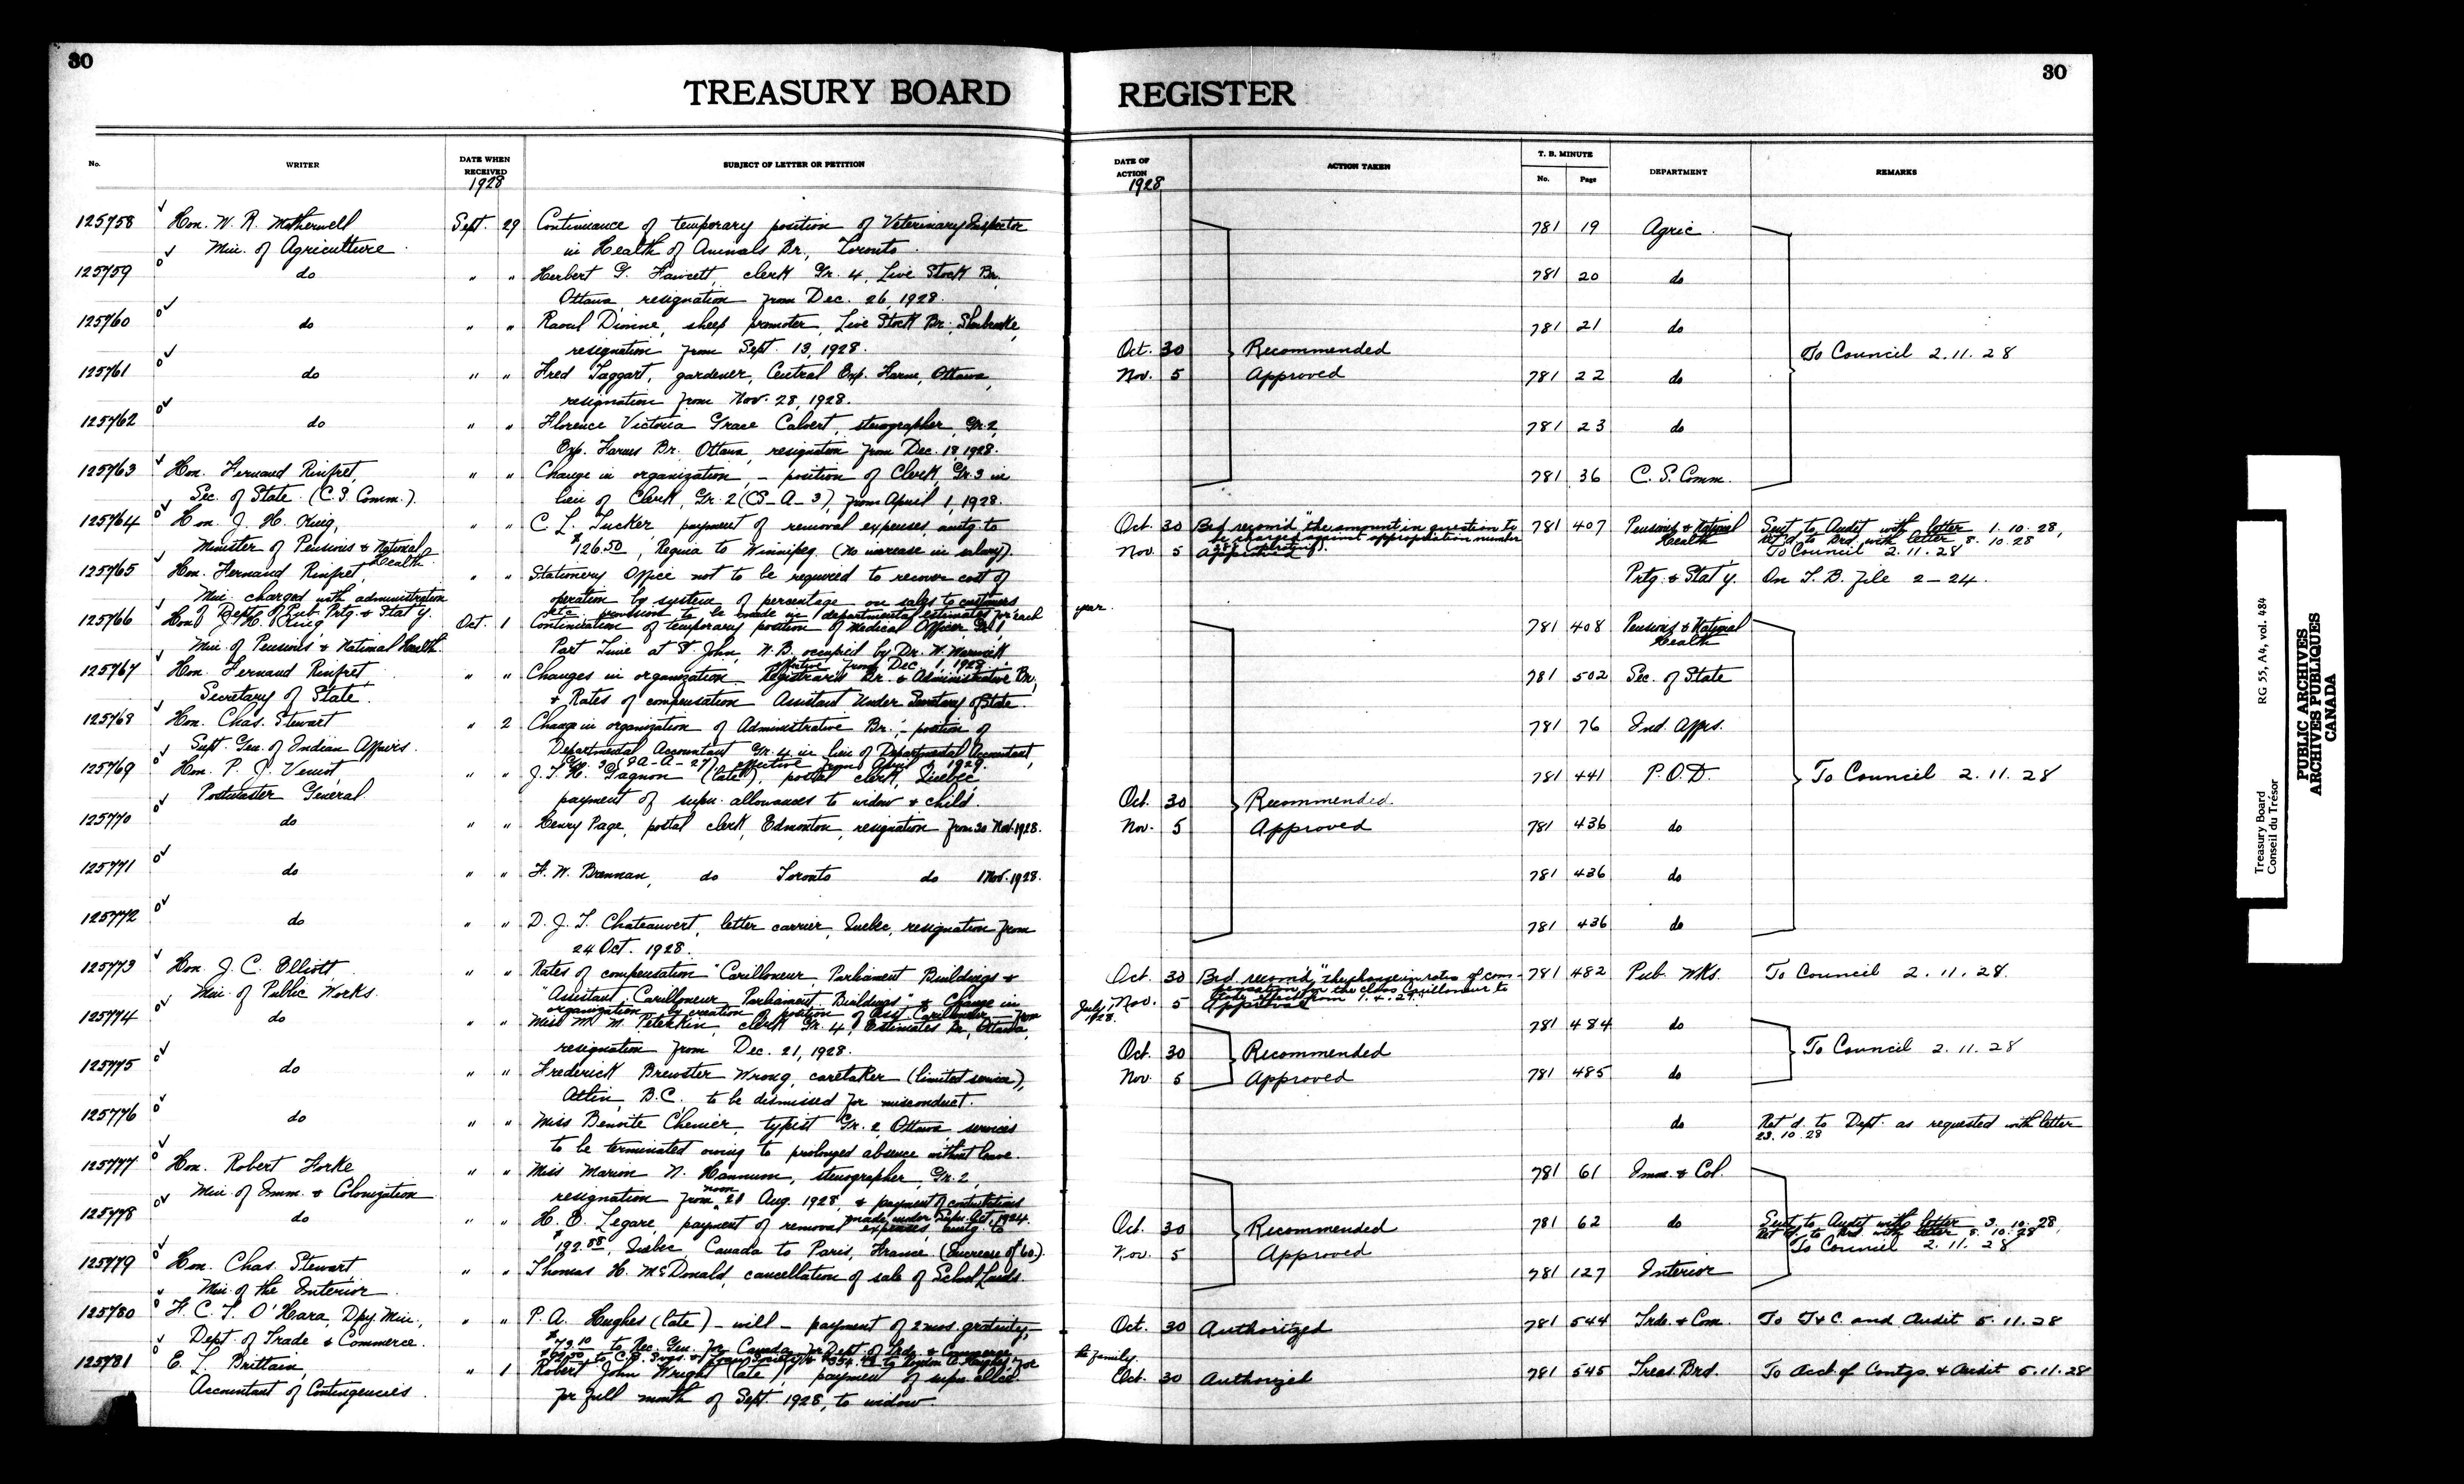 30
TREASURY BOARD
No.
WRITER
DATE WHEN RECEIVED
1928
SUBJECT OF LETTER OR PETITION
125758 Hon. W. R. Motherwell Sept. 29 Continuance of temporary position of Veterinary Inspector
Min. of Agriculture in Health of Animals Br., Toronto
125759 do " " Herbert G. Fawcett, clerk Gr. 4, Live Stock Br.
Ottawa, resignation from Dec. 26, 1928.
125760 do " " Raoul Dionne, sheep promoter, Live Stock Br., Sherbrooke,
resignation from Sept. 13, 1928.
125761 do " " Fred Taggart, gardener, Central Exp. Farm, Ottawa,
resignation from Nov. 28, 1928.
125762 do " " Florence Victoria Grace Calvert, stenographer, Gr. 2,
Exp. Farms Br. Ottawa, resignation from Dec. 18, 1928.
125763 Hon. Fernand Rinfret, " " Change in organization, - position of Clerk, Gr. 3 in
Sec. of State (C.S. Comm.). lieu of Clerk, Gr. 2 (CS-A-3), from April 1, 1928.
125764 Hon. J. H. King, " " C. L. Tucker, payment of removal expenses, amtg. to
Minister of Pensions & National Health $126.50, Regina to Winnipeg. (No increase in salary).
125765 Hon. Fernand Rinfret, " " Stationery Office not to be required to recover cost of
Min. charged with administration operation by system of percentage on sales to customers
of Depts of Pub. Prtg. & Stat'y. etc. provision to be made in departmental estimates for each
125766 Hon. J. H. King Oct. 1 Continuation of temporary position of Medical Officer, Gr. 1,
Min. of Pensions & National Health Part Time at St. John, N.B. occupied by Dr. W. Warwick
effective from Dec. 1, 1928.
125767 Hon. Fernand Rinfret, " " Changes in organization Registrar's Br. & Administrative Br.,
Secretary of State. & Rates of compensation Assistant Under Secretary of State.
125768 Hon. Chas. Stewart " 2 Change in organization of Administrative Br.; - position of
Supt. Gen. of Indian Affairs. Departmental Accountant Gr. 4 in lieu of Departmental Accountant,
Gr. 3 (IA-A-27), effective from April 1, 1929.
125769 Hon. P. J. Veniot, " " J. T. H. Gagnon (late), postal clerk, Quebec,
Postmaster General payment of supn. allowances to widow & child.
125770 do " " Henry Page, postal clerk, Edmonton, resignation from 30 Nov. 1928.
125771 do " " F. W. Brennan, do Toronto do 1 Nov. 1928.
125772 do " " D. J. T. Chateauvert, letter carrier, Quebec, resignation from
24 Oct. 1928.
125773 Hon. J. C. Elliott, " " Rates of compensation "Carilloneur, Parliament Buildings &
Min. of Public Works. "Assistant Carilloneur Parliament Buildings", & Change in
organization by creation of position of Asst. Carilloneur - from
125774 do " " Miss M. M. Peterkin, clerk Gr. 4, Estimates Br., Ottawa,
resignation from Dec. 21, 1928.
125775 do " " Frederick Brewster Wrong, caretaker (limited service),
Atlin, B.C. to be dismissed for misconduct.
125776 do " " Miss Benoite Chenier, typist Gr. 2, Ottawa services
to be terminated owing to prolonged absence without leave.
125777 Hon. Robert Forke " " Miss Marion N. Hannum, stenographer, Gr. 2,
Min. of Imm. & Colonization resignation from noon 21 Aug. 1928, & payment of contributions
made under Supn. Act, 1924.
125778 do " " H. E. Legare, payment of removal expenses, amtg. to
$192.88, Quebec, Canada to Paris, France. (Increase of $60.).
125779 Hon. Chas. Stewart " " Thomas H. McDonald, cancellation of sale of School Lands.
Min. of the Interior.
125780 F. C. T. O'Hara, Dpy. Min., " " P. A. Hughes (late) - will - payment of 2 mos. gratuity,
Dept. of Trade & Commerce. to Rec. Gen. for Canada for Dept of Trde. & Commerce,
125781 E. L. Brittain, " 1 Robert John Wright (late), payment of supn. allce.
Accountant of Contingencies. for full month of Sept. 1928, to widow.
30
REGISTER
DATE OF ACTION
1928
ACTION TAKEN
T. B. MINUTE
No.
Page
DEPARTMENT
REMARKS
781 19 Agric.
781 20 do
781 21 do
Oct. 30 Recommended To Council 2.11.28
Nov. 5 Approved 781 22 do
781 23 do
781 36 C. S. Comm.
Oct. 30 Brd recom'd "the amount in question to 781 407 Pensions & National Health Sent to Audit with letter 1.10.28,
be charged against appropriation number Ret'd to Brd. with letter 8.10.28
Nov. 5 Approved To Council 2.11.28
Prtg. & Stat'y. On T. B. file 2-24.
year.
781 408 Pensions & National Health
781 502 Sec. of State
781 76 Ind. Affrs.
781 441 P.O.D. To Council 2.11.28
Oct. 30 Recommended.
Nov. 5 Approved 781 436 do
781 436 do
781 436 do
Oct. 30 Brd. recom'd, "the change in rates of com- 781 482 Pub. Wks. To Council 2.11.28.
pensation for the class Carilloneur to
take effect from 1.4.29."
July 1, 1928. Nov. 5 Approved
781 484 do
Oct. 30 Recommended To Council 2.11.28
Nov. 5 Approved 781 485 do
do Ret'd. to Dept. as requested with letter
23.10.28
781 61 Imm. & Col.
Oct. 30 Recommended 781 62 do Sent to Audit with letter 3.10.28,
Ret'd. to Brd. with letter 8.10.28,
Nov. 5 Approved To Council 2.11.28
781 127 Interior
Oct. 30 Authorized 781 544 Trde. & Com. To T & C. and Audit 5.11.28
the family.
Oct. 30 Authorized 781 545 Treas. Brd. To Acct. of Contgs. & Audit 5.11.28
Treasury Board RG 55, A4, vol. 484
Conseil du Trésor
PUBLIC ARCHIVES
ARCHIVES PUBLIQUES
CANADA